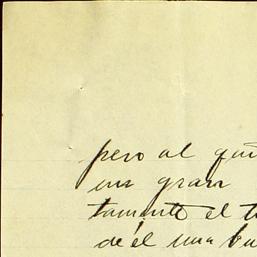 pero al
un gran
tamente el
de él una